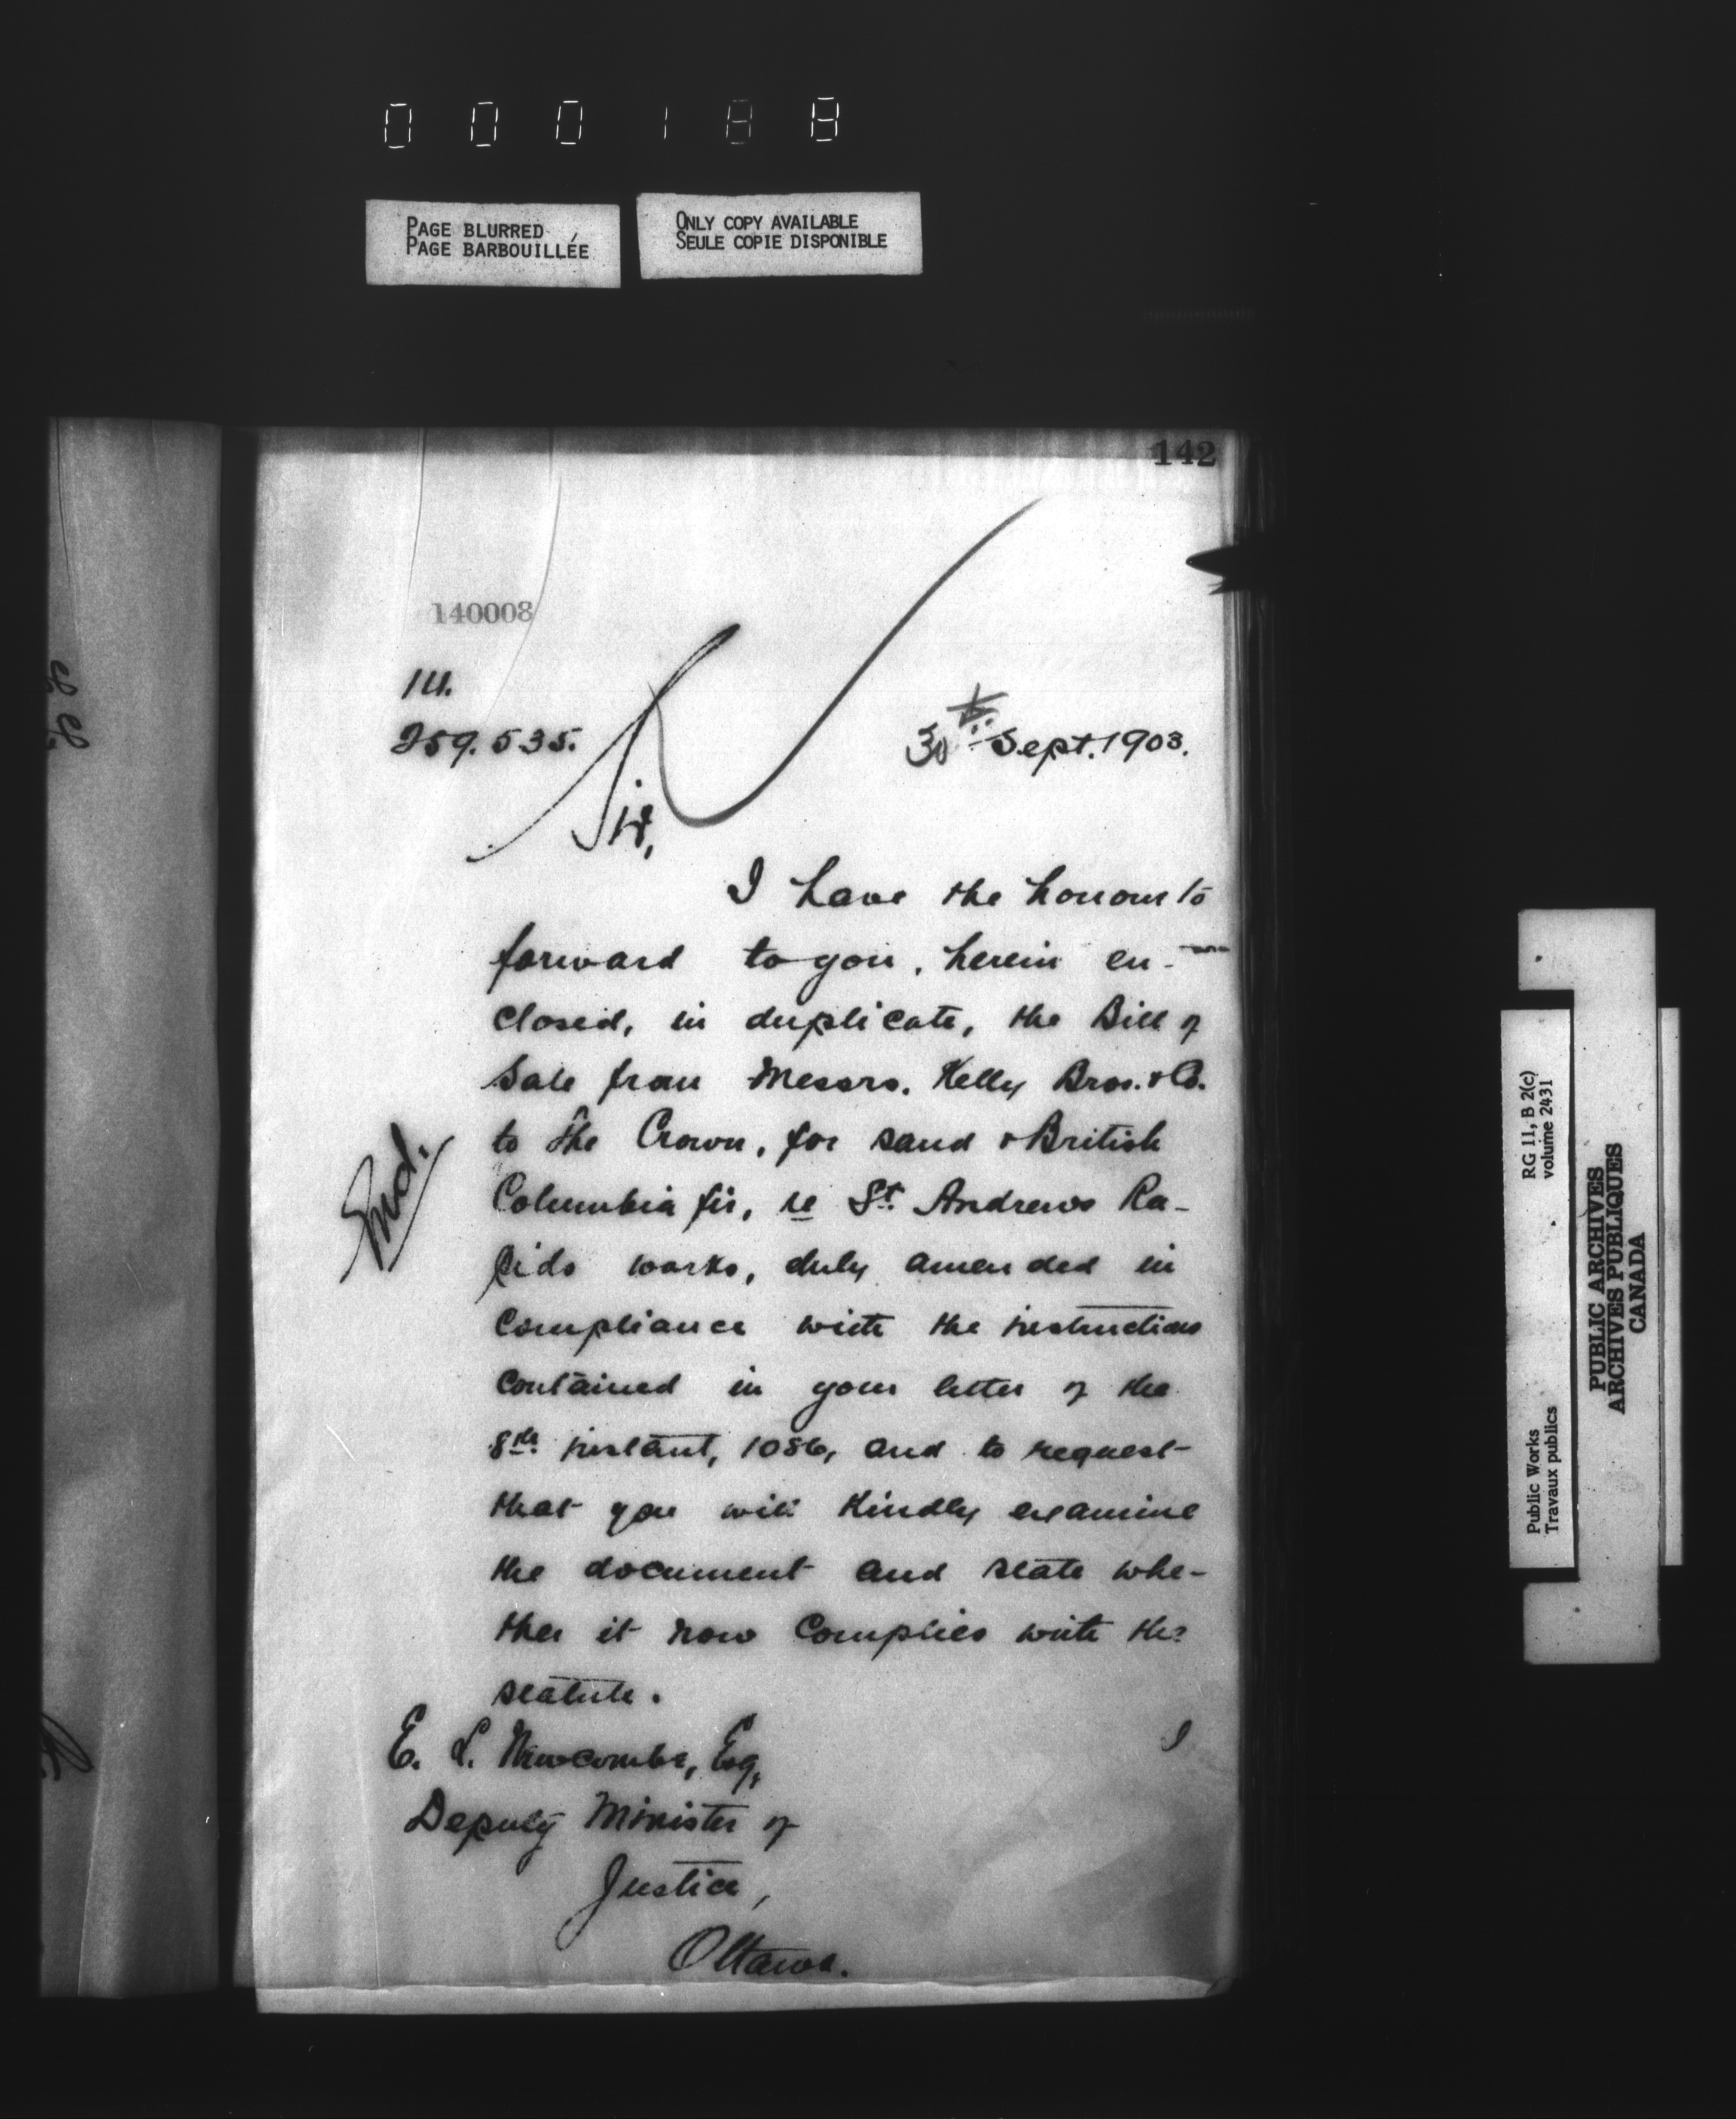 000188
PAGE BLURRED
PAGE BARBOUILLÉE
ONLY COPY AVAILABLE
SEULE COPIE DISPONIBLE
142
140008
259.535.
30th Sept. 1903.
Sir,
I have the honour to
forward to you, herein en-
closed, in duplicate, the Bill of
Sale from Messrs. Kelly Bros. & Co.
to the Crown, for sand & British
Columbia fir, re St. Andrews Ra-
pids works, duly amended in
compliance with the instructions
contained in your letter of the
8th instant, 1086, and to request
that you will kindly examine
the document and state whe-
ther it now complies with the
statute.
E. L. Newcombe, Esq,
Deputy Minister of
Justice,
Ottawa.
I
Public Works
Travaux publics
RG 11, B 2(c)
volume 2431
PUBLIC ARCHIVES
ARCHIVES PUBLIQUES
CANADA